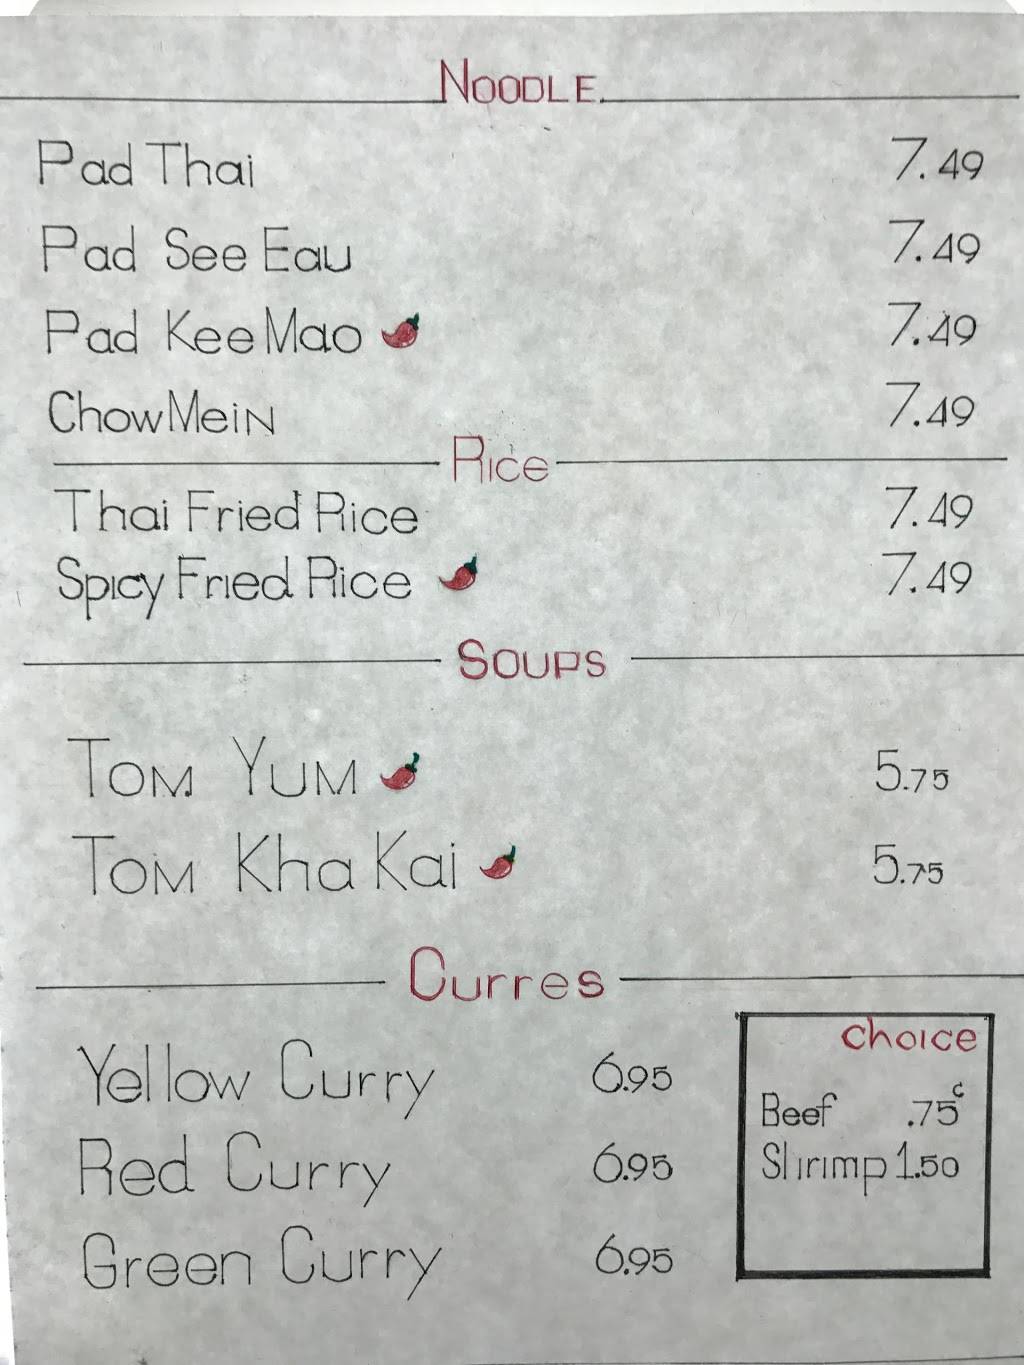 NOODLE
Pad Thai 7.49
Pad See Eau 7.49
Pad Kee Mao 7.49
Chow Mein 7.49
Rice
Thai Fried Rice 7.49
Spicy Fried Rice 7.49
SOUPS
TOM YUM 5.75
TOM Kha Kai 5.75
Curres
Yellow Curry 6.95
Red Curry 6.95
Green Curry 6.95
choice
Beef .75¢
Shrimp 1.50